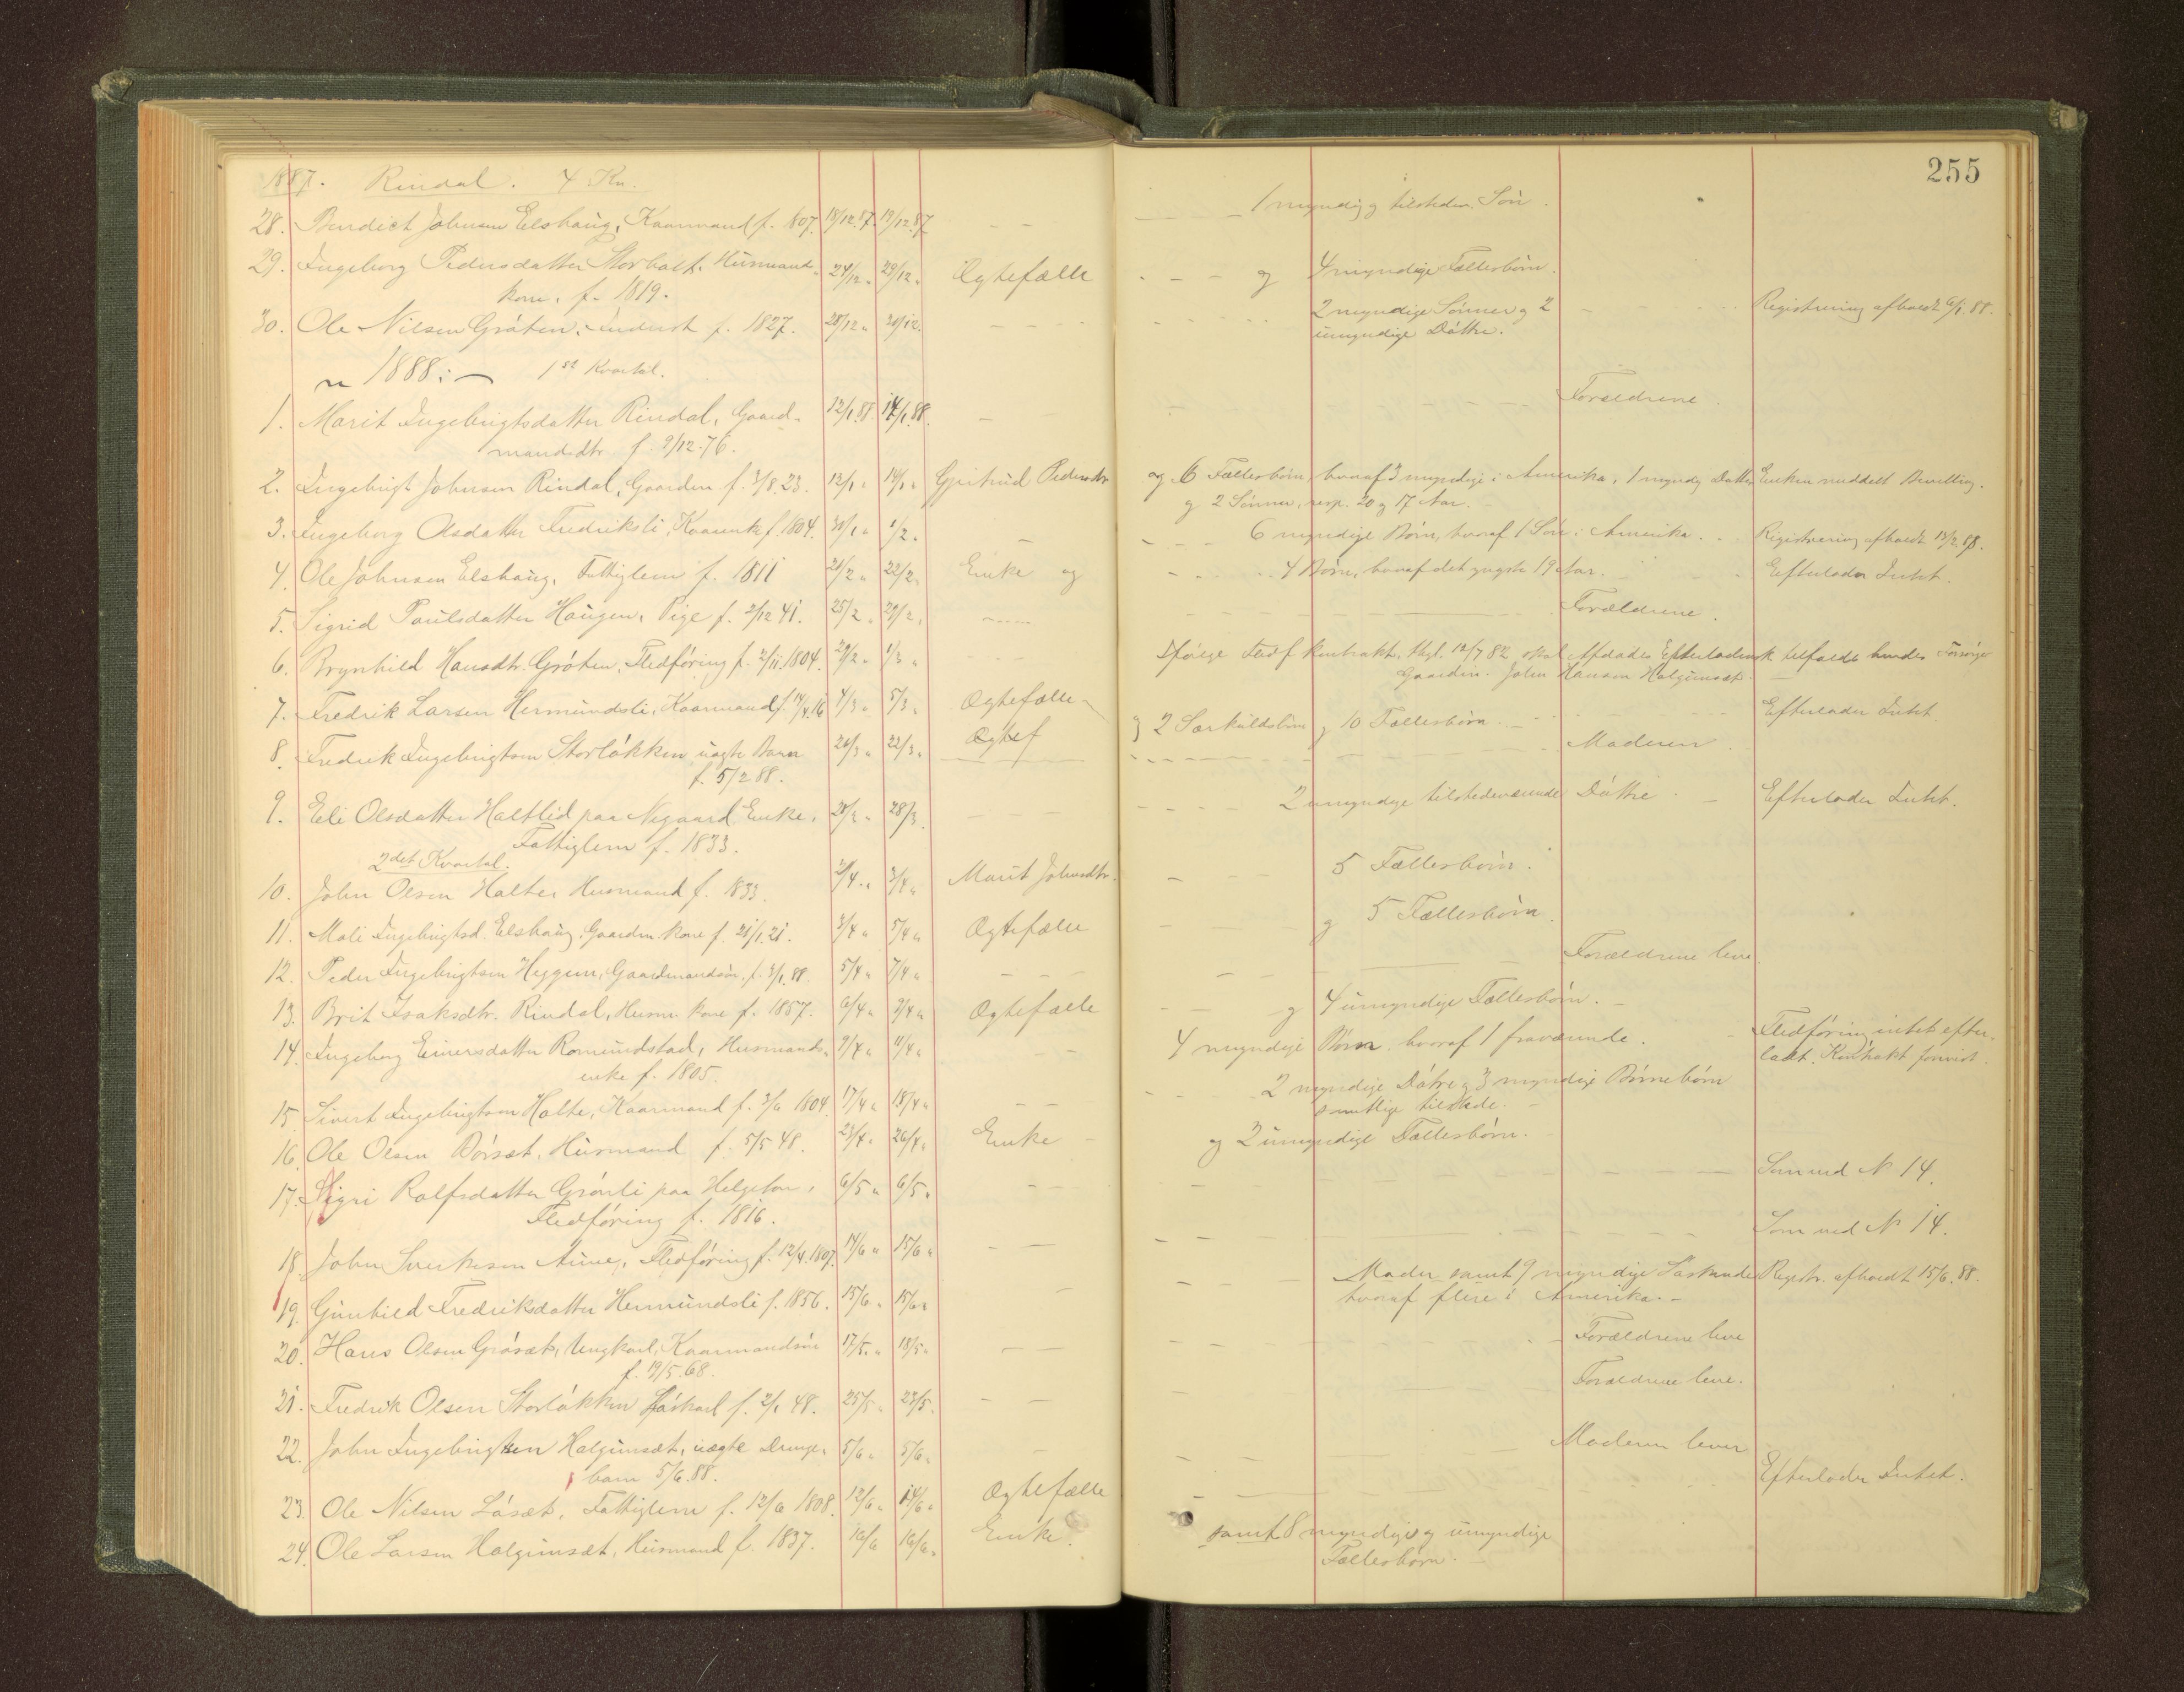 255
1887. Rindal. 4 Kv.
28. Bendict Johnsen Elshaug, Kaarmand f. 1807. 18/12.87. 19/12.87 — — 1 myndig tilsteder. Søn.
29. Ingeborg Pedersdatter Storholt. Husmands- 24/12 " 29/12 " Ægtefælle og 4 myndige Fællesbørn.
kone, f. 1819.
30. Ole Nilsen Gråten, Inderst f. 1827. 28/12 " 30/12. 2 myndige Sønner og 2 Registrering afholdt 6/1.88.
umyndige Døttre.
1888: 1ste Kvartal.
1. Marit Ingebrigtsdatter Rindal, Gaard- 12/1.88. 14/1.88. — Forældrene
mandsdtr f. 9/12-76.
2. Ingebrigt Johnsen Rindal, Gaardm f. 3/8.23. 12/1 " 14/1 " Gjertrud Pedersdtr og 6 Fællesbørn, hvoraf 3 myndige i Amerika, 1 myndig Datter Enken meddelt Bevilling.
og 2 Sønner, resp. 20 og 17 Aar.
3. Ingeborg Olsdatter Fredriksli, Kaarenke f. 1804. 30/1 " 1/2 " — 6 myndige Børn, hvoraf 1 Søn i Amerika. Registrering afholdt 13/2.88.
4. Ole Johnsen Elshaug, Fattiglem f. 1811 21/2 " 22/2 " Enke og 4 Børn, hvoraf det yngste 19 Aar. Efterlader Intet.
5. Sigrid Paulsdatter Haugen, Pige f. 2/12 41. 25/2 " 29/2 " Forældrene.
6. Brynhild Hansdtr. Gråten, Fledføring f. 2/11.1804. 29/2 " 1/3 " Ifølge Fledf kontrakt, thgl. 12/7 82 skal Afdødes Efterladensk. tilfalde hendes Forsørger
Gaardm. John Hansen Halgunset.
7. Fredrik Larsen Hermundsli, Kaarmand f. 14/4.16 4/3 " 5/3 " Ægtefælle og 2 Særkuldsbørn og 10 Fællesbørn. Efterlader Intet
8. Fredrik Ingebrigtsen Storløkken uægte Barn 20/3 " 22/3 " Ægtef Moderen
f. 5/2 88.
9. Eli Olsdatter Haltlid paa Nygaard Enke, 28/3 " 28/3. 2 umyndige tilstedeværende Døttre Efterlader Intet.
Fattiglem f. 1833.
2det Kvartal.
10. John Olsen Halten Husmand f. 1833. 2/4 " 3/4 " Marit Johnsdtr. 5 Fællesbørn.
11. Mali Ingebrigtsd. Elshaug, Gaardm. kone f. 21/1.21. 3/4 " 5/4 " Ægtefælle og 5 Fællesbørn.
12. Peder Ingebrigtsen Heggem, Gaardmandsøn, f. 3/1.88. 5/4 " 7/4 " Forældrene leve.
13. Brit Isaksdtr. Rindal, Husm. kone f. 1857. 6/4 " 9/4 " Ægtefælle og 4 umyndige Fællesbørn.
14. Ingeborg Einersdatter Romundstad, Husmands- 9/4 " 11/4 " 4 myndige Børn hvoraf 1 fraværende. Fledføring intet efter-
enke f. 1805. ladt. Kontrakt forevist.
15. Sivert Ingebrigtsen Halte, Kaarmand f. 3/6 1804. 17/4 " 18/4 " 2 myndige Døtre og 3 myndige Børnebørn
samtlige tilstede.
16. Ole Olsen Børset, Husmand f. 5/5 48. 23/4 " 26/4 " Enke og 2 umyndige Fællesbørn.
17. Sigri Rolfsdatter Grønli paa Helgeton, 6/5 " 6/5 " Som ved No 14.
Fledføring f. 1816.
18. John Sivertsen Aune, Fledføring f. 12/4.1807. 14/6 " 15/6 " Som ved No 14.
19. Gunhild Fredriksdatter Hermundsli f. 1856. 15/6 " 15/6 " Moder samt 9 myndige Søskende Registr. afholdt 15/6.88.
hvoraf flere i Amerika.
20. Hans Olsen Gråset, Ungkarl, Kaarmandsøn 17/5 " 18/5 " Forældrene leve
f. 19/5.68.
21. Fredrik Olsen Storløkken Løskarl f. 2/1 48. 25/5 " 25/5. Forældrene leve.
22. John Ingebrigtsen Halgunset, uægte Drenge- 5/6 " 5/6 " Moderen lever
barn 5/6.88.
23. Ole Nilsen Løset, Fattiglem f. 12/6 1808. 12/6 " 14/6 " Ægtefælle Efterlader Intet.
24. Ole Larsen Halgunset, Husmand f. 1837. 16/6 16/6 " Enke. samt 8 myndige og umyndige
Fællesbørn.